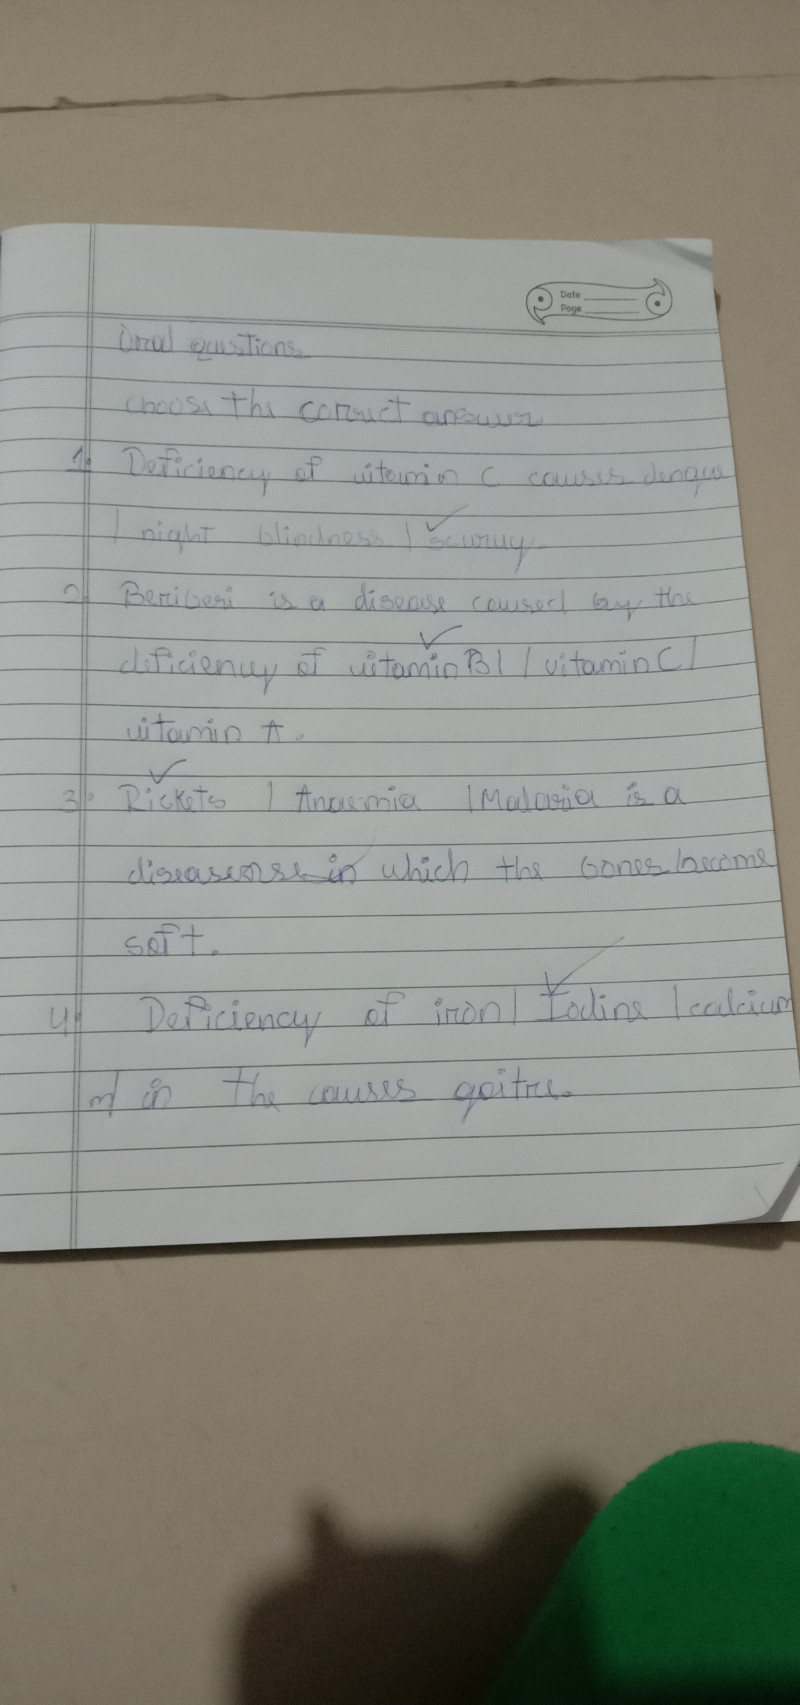 Date
Page
Oral questions
choose the correct answer
1. Deficiency of vitamin C causes dengue
/ night blindness / scurvy
2. Beriberi is a disease caused by the
deficiency of vitamin B1 / vitamin C /
vitamin A.
3. Rickets / Anaemia / Malaria is a
in which the bones become
soft.
4. Deficiency of iron / Iodine / calcium
in the causes goitre.